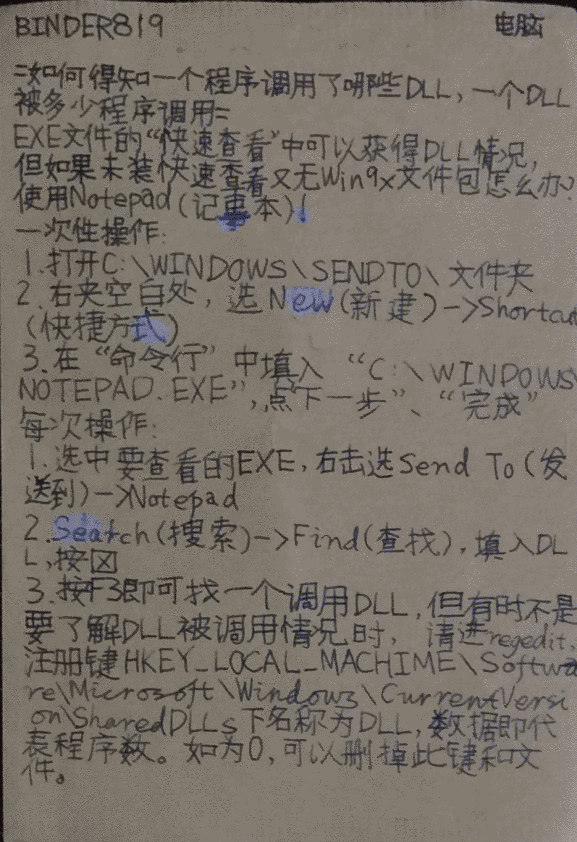 BINDER819 电脑
=如何得知一个程序调用了哪些DLL，一个DLL
被多少程序调用=
EXE文件的“快速查看”中可以获得DLL情况，
但如果未装快速查看又无Win9x文件包怎么办?
使用Notepad(记事本)!
一次性操作:
1.打开C:\WINDOWS\SENDTO\文件夹
2.右夹空白处，选New(新建)->Shortcut
(快捷方式)
3.在“命令行”中填入“C:\WINDOWS\
NOTEPAD.EXE”,点“下一步”、“完成”
每次操作:
1.选中要查看的EXE,右击选Send To(发
送到)->Notepad
2.Search(搜索)->Find(查找),填入DL
L,按区
3.按F3即可找一个调用DLL,但有时不是
要了解DLL被调用情况时，请进regedit,
注册键HKEY_LOCAL_MACHIME\Softwa
re\Microsoft\Windows\CurrentVersi
on\SharedDLLs下名称为DLL,数据即代
表程序数。如为0,可以删掉此键和文
件。